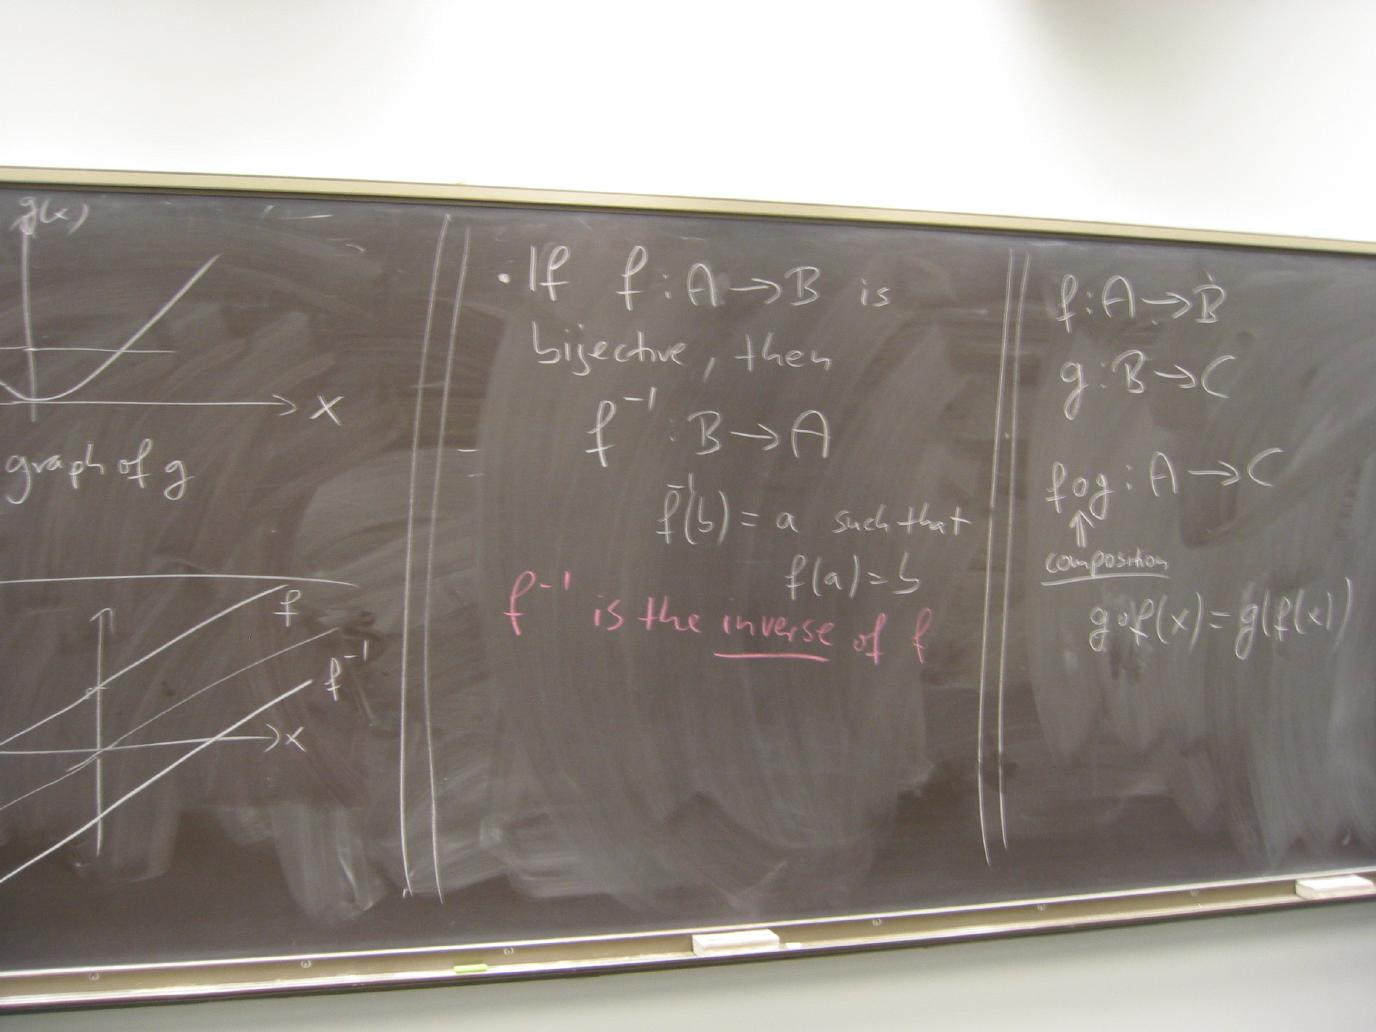 g(x)
x
graph of g
f
f⁻¹
x
• If f : A → B is
bijective, then
f⁻¹ : B → A
f⁻¹(b) = a such that
f(a) = b
f⁻¹ is the inverse of f
f : A → B
g : B → C
fog : A → C
↑
composition
g∘f(x) = g(f(x))